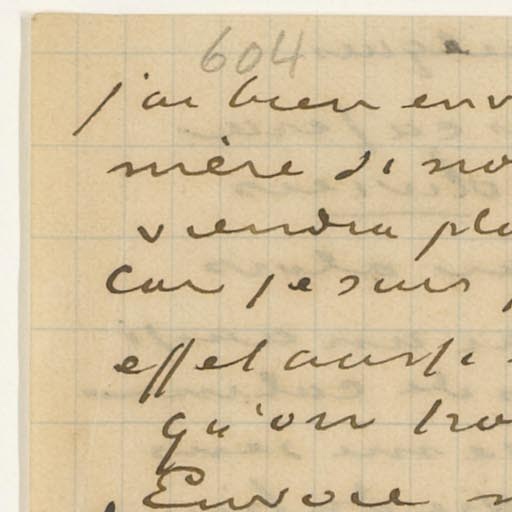 604
j'ai bien env
mère si no
viendra pl
car je suis
effet aussi
qu'on tro
Envoie